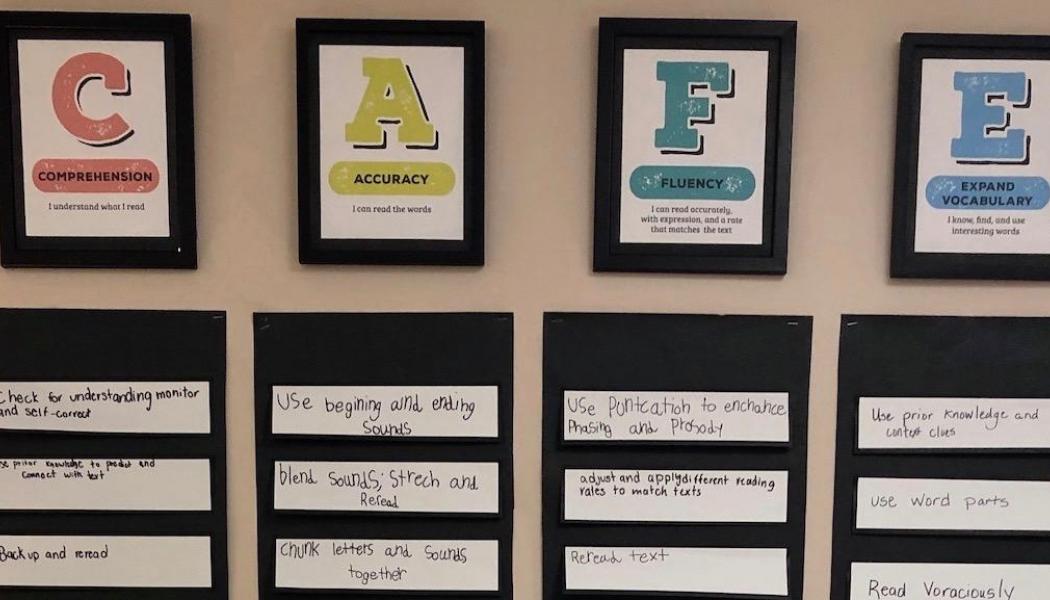 C
COMPREHENSION
I understand what I read
A
ACCURACY
I can read the words
F
FLUENCY
I can read accurately,
with expression, and a rate
that matches the text
E
EXPAND
VOCABULARY
I know, find, and use
interesting words
Check for understanding monitor
and self-correct
prior knowledge to and
Connect with text
Back up and reread
Use begining and ending
Sounds
blend Sounds; Strech and
Reread
Chunk letters and Sounds
together
Use Pontcation to enchance
Phasing and Prosody
adjust and apply different reading
rates to match texts
Reread text
Use prior Knowledge and
context clues
use word parts
Read Voraciously